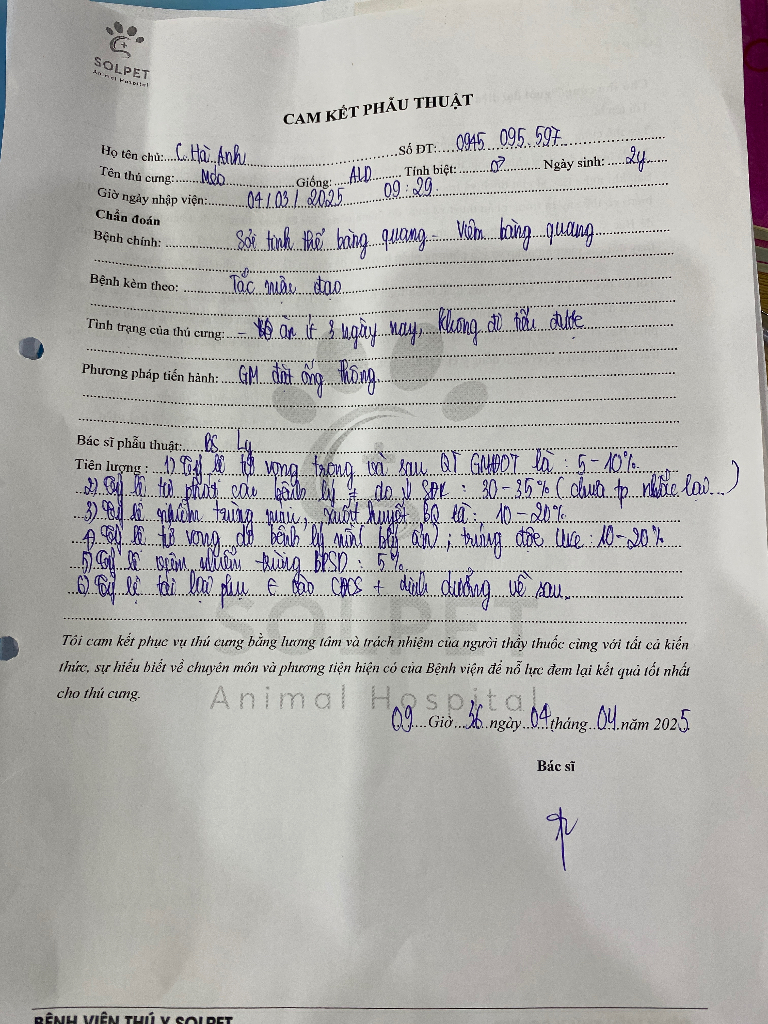 SOLPET
Animal Hospital
CAM KẾT PHẪU THUẬT
Họ tên chủ: C. Hà Anh Số ĐT: 0945 095.597
Tên thú cưng: Mèo Giống: ALD Tính biệt: ♂ Ngày sinh: 2y
Giờ ngày nhập viện: 04/03/2025 09:29
Chẩn đoán
Bệnh chính: Sỏi tinh thể bàng quang - Viêm bàng quang
Bệnh kèm theo: Tắc niệu đạo
Tình trạng của thú cưng: - ăn ít 3 ngày nay, không đi tiểu được
Phương pháp tiến hành: GM đặt ống thông
Bác sĩ phẫu thuật: BS Ly
Tiên lượng: 1) Tỷ lệ tử vong trong và sau QT GMĐOT là: 5-10%
2) Tỷ lệ tái phát các bệnh lý ≠ do ↓ SĐK: 30-35% (chưa tp nhắc lại...)
3) Tỷ lệ nhiễm trùng máu, xuất huyết BQ là: 10-20%
4) Tỷ lệ tử vong do bệnh lý nền (bệnh ẩn), trúng độc ure: 10-20%
5) Tỷ lệ viêm nhiễm trùng: 5%
6) Tỷ lệ tái lại phụ ∈ vào CĐCS + dinh dưỡng về sau.
SOLPET
Tôi cam kết phục vụ thú cưng bằng lương tâm và trách nhiệm của người thầy thuốc cùng với tất cả kiến
thức, sự hiểu biết về chuyên môn và phương tiện hiện có của Bệnh viện để nỗ lực đem lại kết quả tốt nhất
cho thú cưng.
Animal Hospital
09 Giờ 36 ngày 04 tháng 04 năm 2025
Bác sĩ
BỆNH VIỆN THÚ Y SOLPET